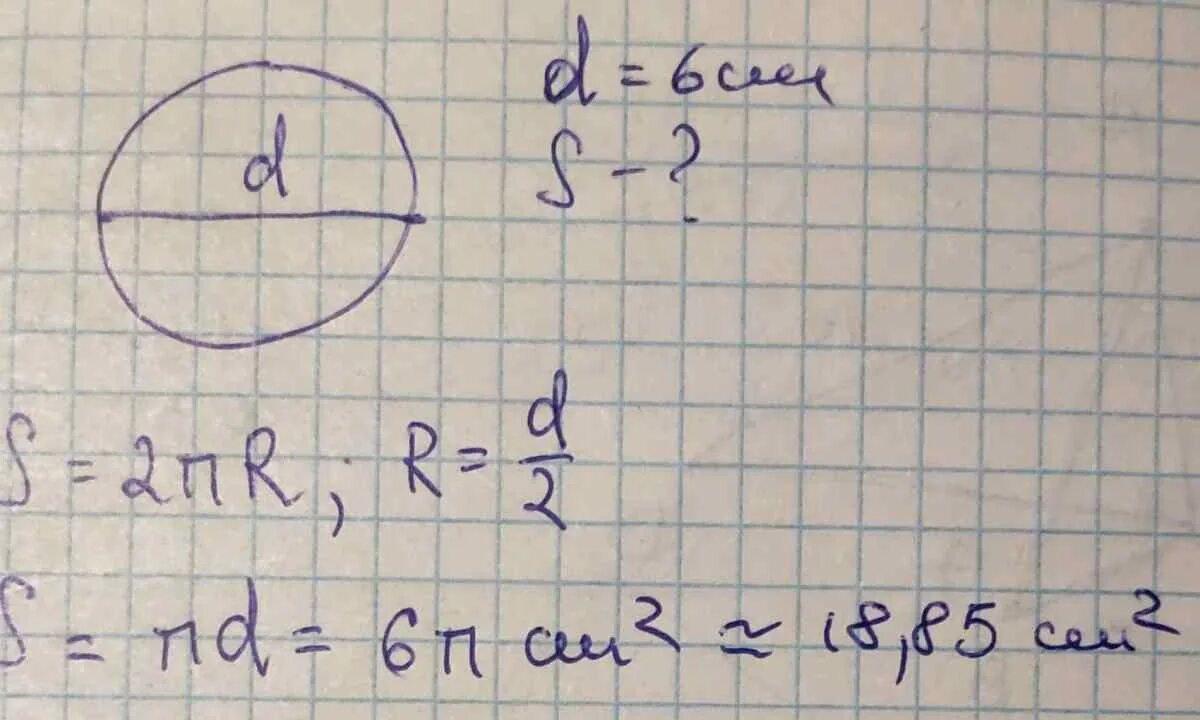 d
d = 6 см
S - ?
S = 2πR ; R = d/2
S = πd = 6π см² ≃ 18,85 см²